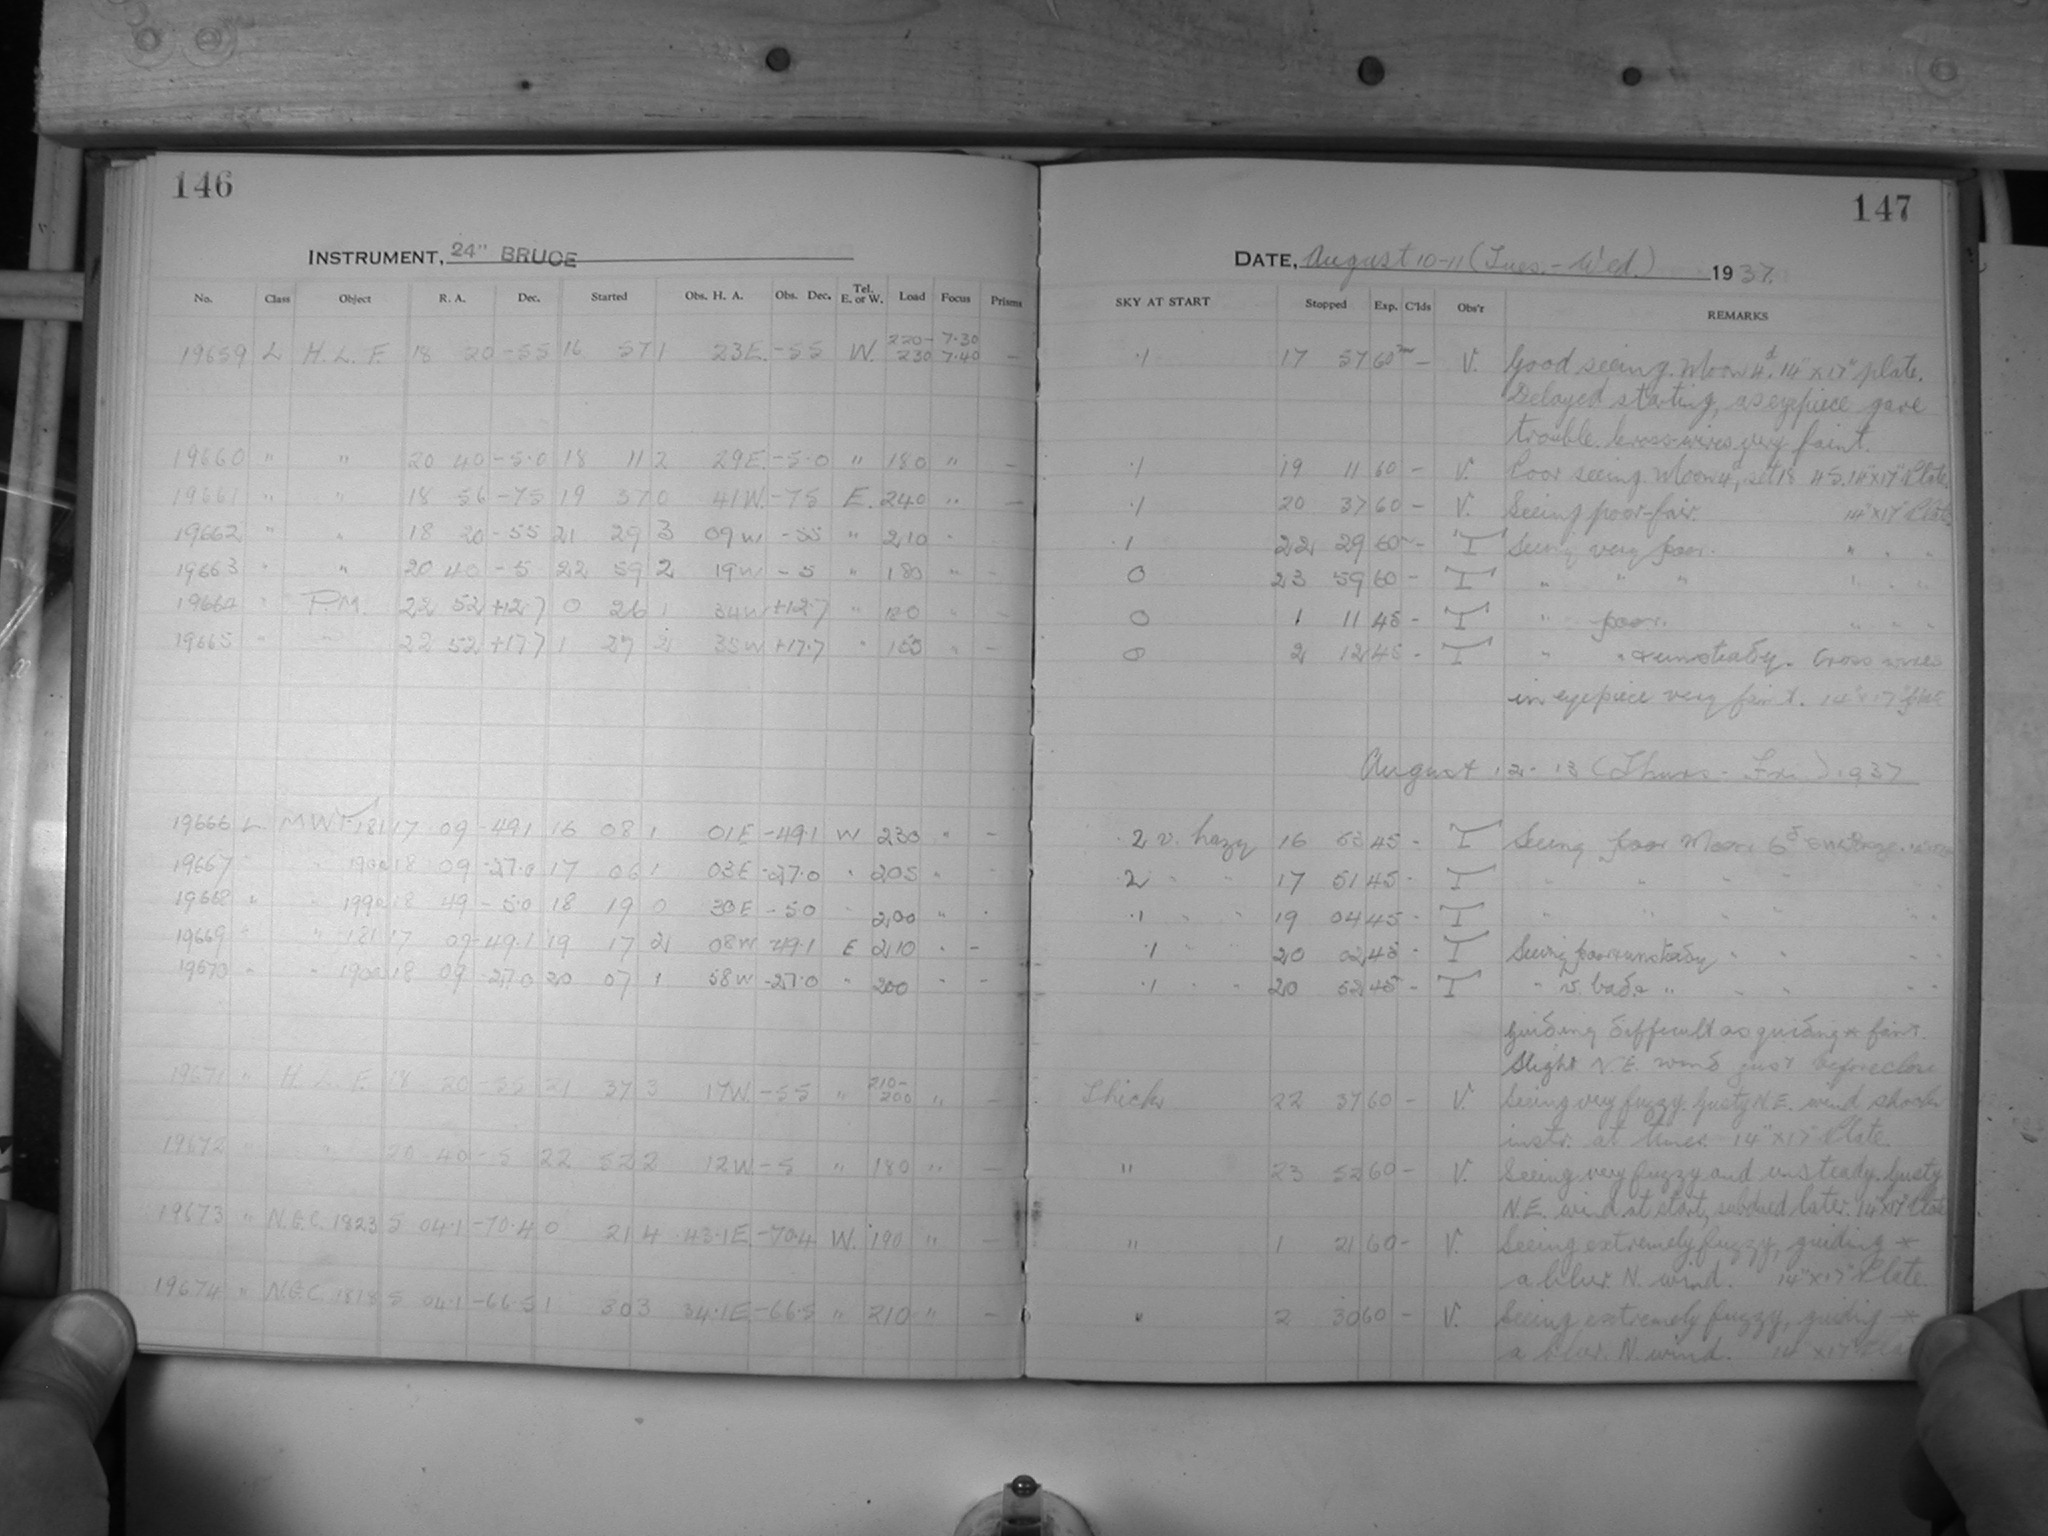 146
147
INSTRUMENT, 24" BRUCE
DATE, August 10-11 (Tues. - Wed.) 1937.
No. Class Object R. A. Dec. Started Obs. H. A. Obs. Dec. Tel. E. or W. Load Focus Prisms
SKY AT START Stopped Exp. C'lds Obs'r REMARKS
19659 L H. L. F. 18 20 -55 16 57 1 23E. -55 W. 220-230 7.30 7.40 — .1 17 57 60m — V. Good seeing. Moon 4d. 14" x 17" plate.
Delayed starting, as eyepiece gave
trouble. Cross-wires very faint.
19660 " " 20 40 -5.0 18 11 2 29E. -5.0 " 180 " — .1 19 11 60 — V. Poor seeing. Moon 4, set 18 45. 14"x17" Plate.
19661 " " 18 56 -75 19 37 0 41W. -75 E. 240 " — .1 20 37 60 — V. Seeing poor-fair. 14"x17" Plate
19662 " " 18 20 -55 21 29 3 09W -55 " 210 " - .1 22 29 60 - T Seeing very poor. " " "
19663 " " 20 40 -5 22 59 2 19W -5 " 180 " - 0 23 59 60 - T " " " " " "
19664 " P.M. 22 52 +12.7 0 26 1 34W +12.7 " " - 0 1 11 45 - T " poor. " " "
19665 " " 22 52 +17.7 1 27 2 35W +17.7 " " - 0 2 12 45 - T " " & unsteady. Cross wires
in eyepiece very faint. 14"x17" plate
August 12-13 (Thurs - Fri.) 1937
19666 L MWF 181 17 09 -49.1 16 08 1 01E -49.1 W 230 " - .2 v. hazy 16 53 45 - T Seeing poor Moon 6d
19667 " 190a 18 09 -27.0 17 06 1 03E -27.0 " 205 " - .2 " " 17 51 45 - T " " " "
19668 " " 199a 18 49 -5.0 18 19 0 30E -5.0 " 200 " - .1 " " 19 04 45 - T " " " "
19669 " " 181 17 09 -49.1 19 17 2 08W -49.1 E 210 " - .1 " " 20 02 45 - T Seeing poor & unsteady " " "
19670 " " 190a 18 09 -27.0 20 07 1 58W -27.0 " 200 " - .1 " " 20 52 45 - T " v. bad & " " " "
guiding difficult as guiding * faint.
Slight N.E. wind just before close
19671 " H. L. F. 18 20 -55 21 37 3 17W. -55 " 210-200 " — Thick 22 37 60 — V. Seeing very fuzzy. Gusty N.E. wind shook
instr. at times. 14"x17" Plate.
19672 " " 20 40 -5 22 52 2 12W -5 " 180 " — " 23 52 60 — V. Seeing very fuzzy and unsteady. Gusty
N.E. wind at start, subdued later. 14"x17" Plate
19673 " N.G.C. 1823 5 04.1 -70.4 0 21 4 43.1E. -70.4 W. 190 " — " 1 21 60 - V. Seeing extremely fuzzy, guiding *
a blur. N. wind. 14"x17" Plate.
19674 " N.G.C. 1818 5 04.1 -66.5 1 30 3 34.1E -66.5 " 210 " — " 2 30 60 - V. Seeing extremely fuzzy, guiding *
a blur. N. wind. 14"x17"